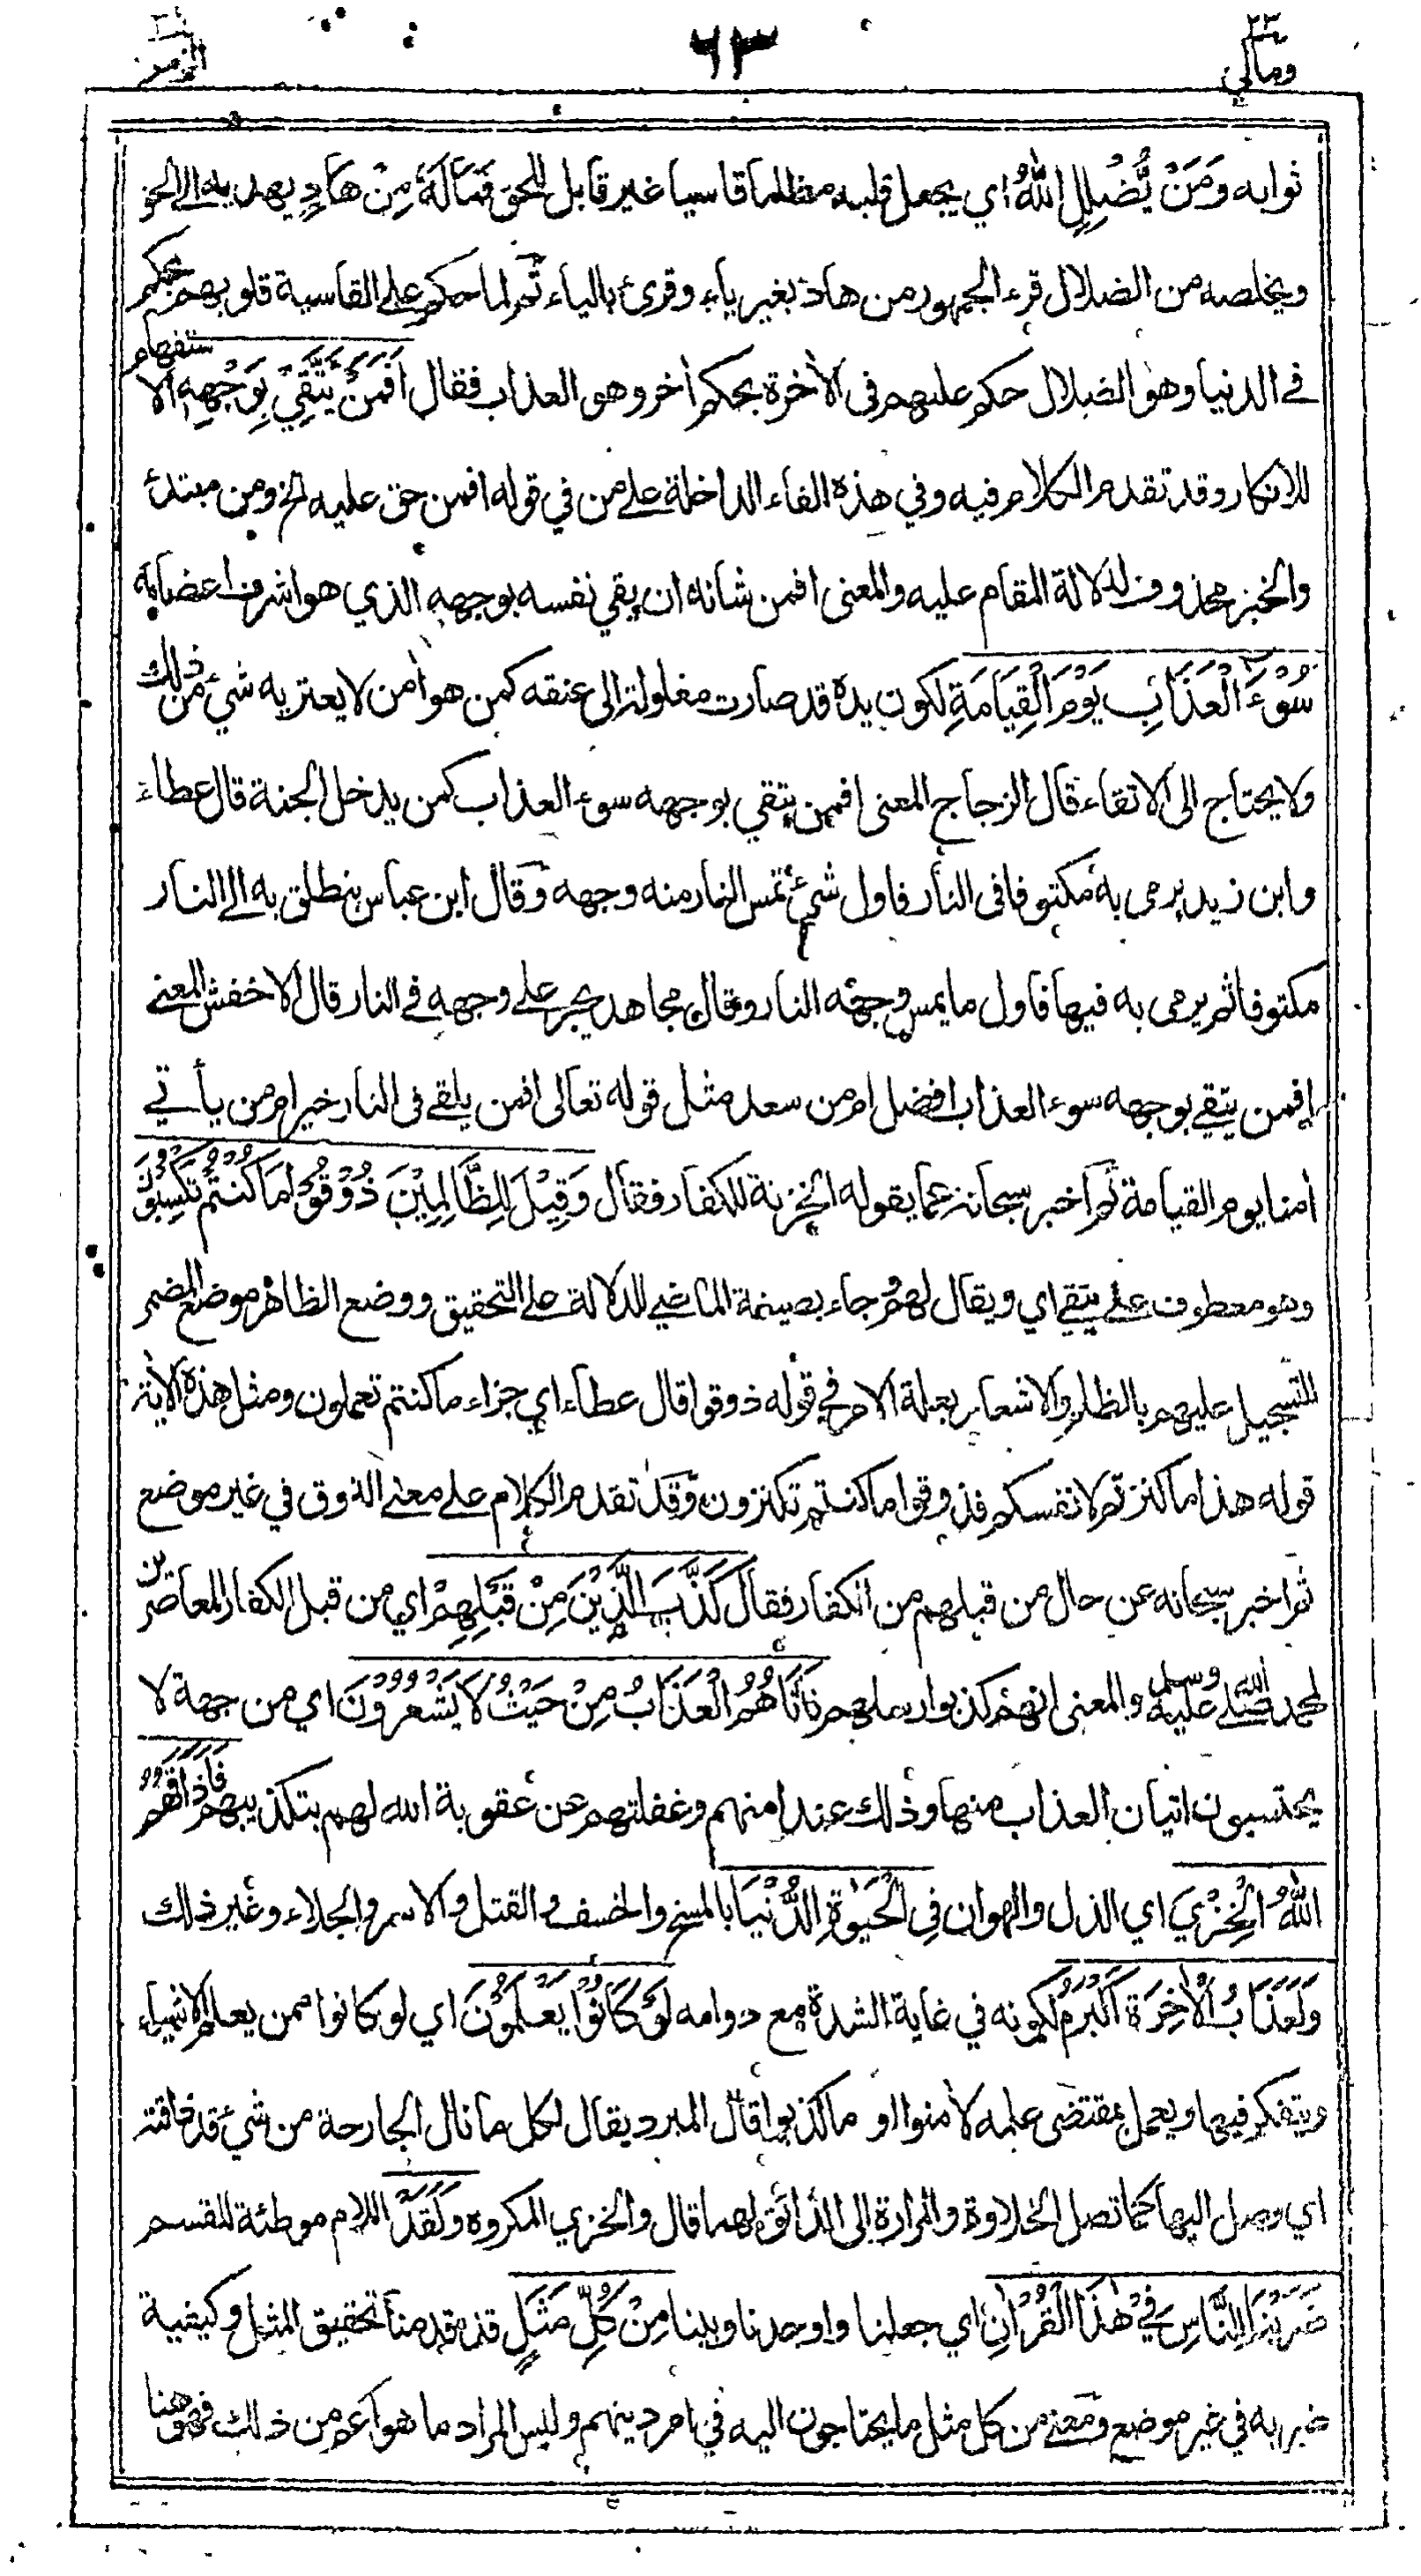 ٢٣
ومالي
٦٣
الزمر
ثوابه وَمَنْ يُّضْلِلِ اللّٰهُ اي يجعل قلبه مظلما قاسيا غير قابل للحق فَمَا لَهٗ مِنْ هَادٍ يهديه الى الحق
ويخلصه من الضلال قرء الجمهور من هاد بغير ياء وقرئ بالياء ثم لما حكم على القاسية قلوبهم بحكم
في الدنيا وهو الضلال حكم عليهم في الأخرة بحكم أخر وهو العذاب فقال اَفَمَنْ يَّتَّقِيْ بِوَجْهِهٖ الاستفهام
للانكار وقد تقدم الكلام فيه وفي هذه الفاء الداخلة على من في قوله افمن حق عليه الخ ومن مبتدأ
والخبر محذوف لدلالة المقام عليه والمعنى افمن شانه ان يقي نفسه بوجهه الذي هو اشرف اعضائه
سُوْٓءَ الْعَذَابِ يَوْمَ الْقِيَامَةِ لكون يده قد صارت مغلولة إلى عنقه كمن هو أمن لا يعتريه شيء من ذلك
ولا يحتاج الى الاتقاء قال الزجاج المعنى افمن يتقي بوجهه سوء العذاب كمن يدخل الجنة قال عطاء
وابن زيد يرمى به مكتوفا في النار فاول شيء تمس النار منه وجهه وقال ابن عباس ينطلق به الى النار
مكتوفا ثم يرمى به فيها فاول ما يمس وجهه النار وقال مجاهد يجر على وجهه في النار قال الاخفش المعنى
افمن يتقي بوجهه سوء العذاب افضل ام من سعد مثل قوله تعالى افمن يلقى في النار خير ام من يأتي
أمنا يوم القيامة ثم اخبر سبحانه عما يقوله الخزنة للكفار فقال وَقِيْلَ لِلظَّالِمِيْنَ ذُوْقُوْا مَا كُنْتُمْ تَكْسِبُوْنَ
وهو معطوف على يتقي اي ويقال لهم وجاء بصيغة الماضي للدلالة على التحقيق ووضع الظاهر موضع المضمر
للتسجيل عليهم بالظلم والاشعار بعلة الامر في قوله ذوقوا قال عطاء اي جزاء ما كنتم تعملون ومثل هذه الأية
قوله هذا ما كنزتم لانفسكم فذوقوا ما كنتم تكنزون وقد تقدم الكلام على معنى الذوق في غير موضع
ثم اخبر سبحانه عن حال من قبلهم من الكفار فقال كَذَّبَ الَّذِيْنَ مِنْ قَبْلِهِمْ اي من قبل الكفار المعاصرين
لمحمد صلى الله عليه وسلم والمعنى انهم كذبوا رسلهم فَاَتَاهُمُ الْعَذَابُ مِنْ حَيْثُ لَا يَشْعُرُوْنَ اي من جهة لا
يحتسبون اتيان العذاب منها وذلك عند امنهم وغفلتهم عن عقوبة الله لهم بتكذيبهم فَاَذَاقَهُمُ
اللّٰهُ الْخِزْيَ اي الذل والهوان فِي الْحَيٰوةِ الدُّنْيَا بالمسخ والخسف والقتل والاسر والجلاء وغير ذلك
وَلَعَذَابُ الْاٰخِرَةِ اَكْبَرُ لكونه في غاية الشدة مع دوامه لَوْ كَانُوْا يَعْلَمُوْنَ اي لو كانوا ممن يعلم الاشياء
ويتفكر فيها ويعمل بمقتضى علمه لأمنوا او ما كذبوا قال المبرد يقال لكل ما نال الجارحة من شيء قد ذاقته
اي وصل اليها كما تصل الحلاوة والمرارة إلى الذائق لهما قال والخزي المكروه وَلَقَدْ اللام موطئة للقسم
ضَرَبْنَا لِلنَّاسِ فِيْ هٰذَا الْقُرْاٰنِ اي جعلنا واوجدنا وبينا مِنْ كُلِّ مَثَلٍ قد قدمنا تحقيق المثل وكيفية
ضربه في غير موضع ومعنى من كل مثل ما يحتاجون اليه في امر دينهم وليس المراد ما هو اعم من ذلك فهو هنا